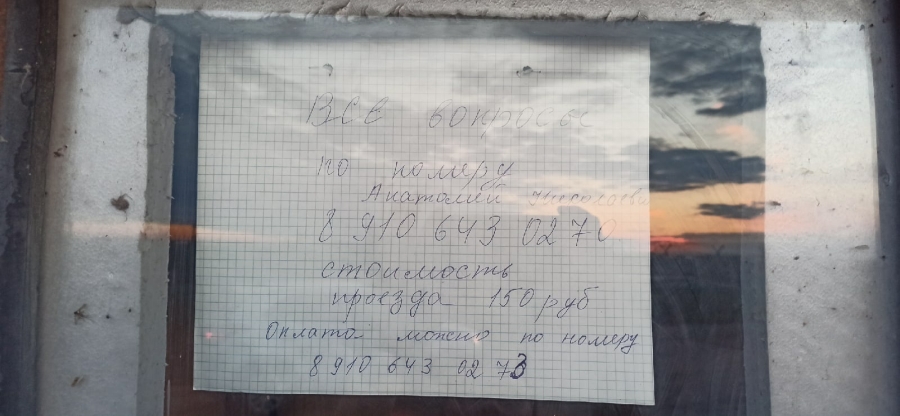 Все вопросы
по номеру
Анатолий Николаевич
8 910 643 02 70
стоимость
проезда 150 руб
Оплата можно по номеру
8 910 643 02 70